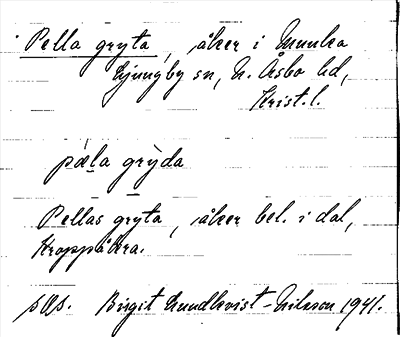 Pella gryta, åker i Munka
Ljungby sn, N. Åsbo hd,
Krist. l.
pæla grỳda
Pellas gryta, åker bel. i dal,
Kroppåkra.
sas. Birgit Lundkvist-Nilsson 1941.